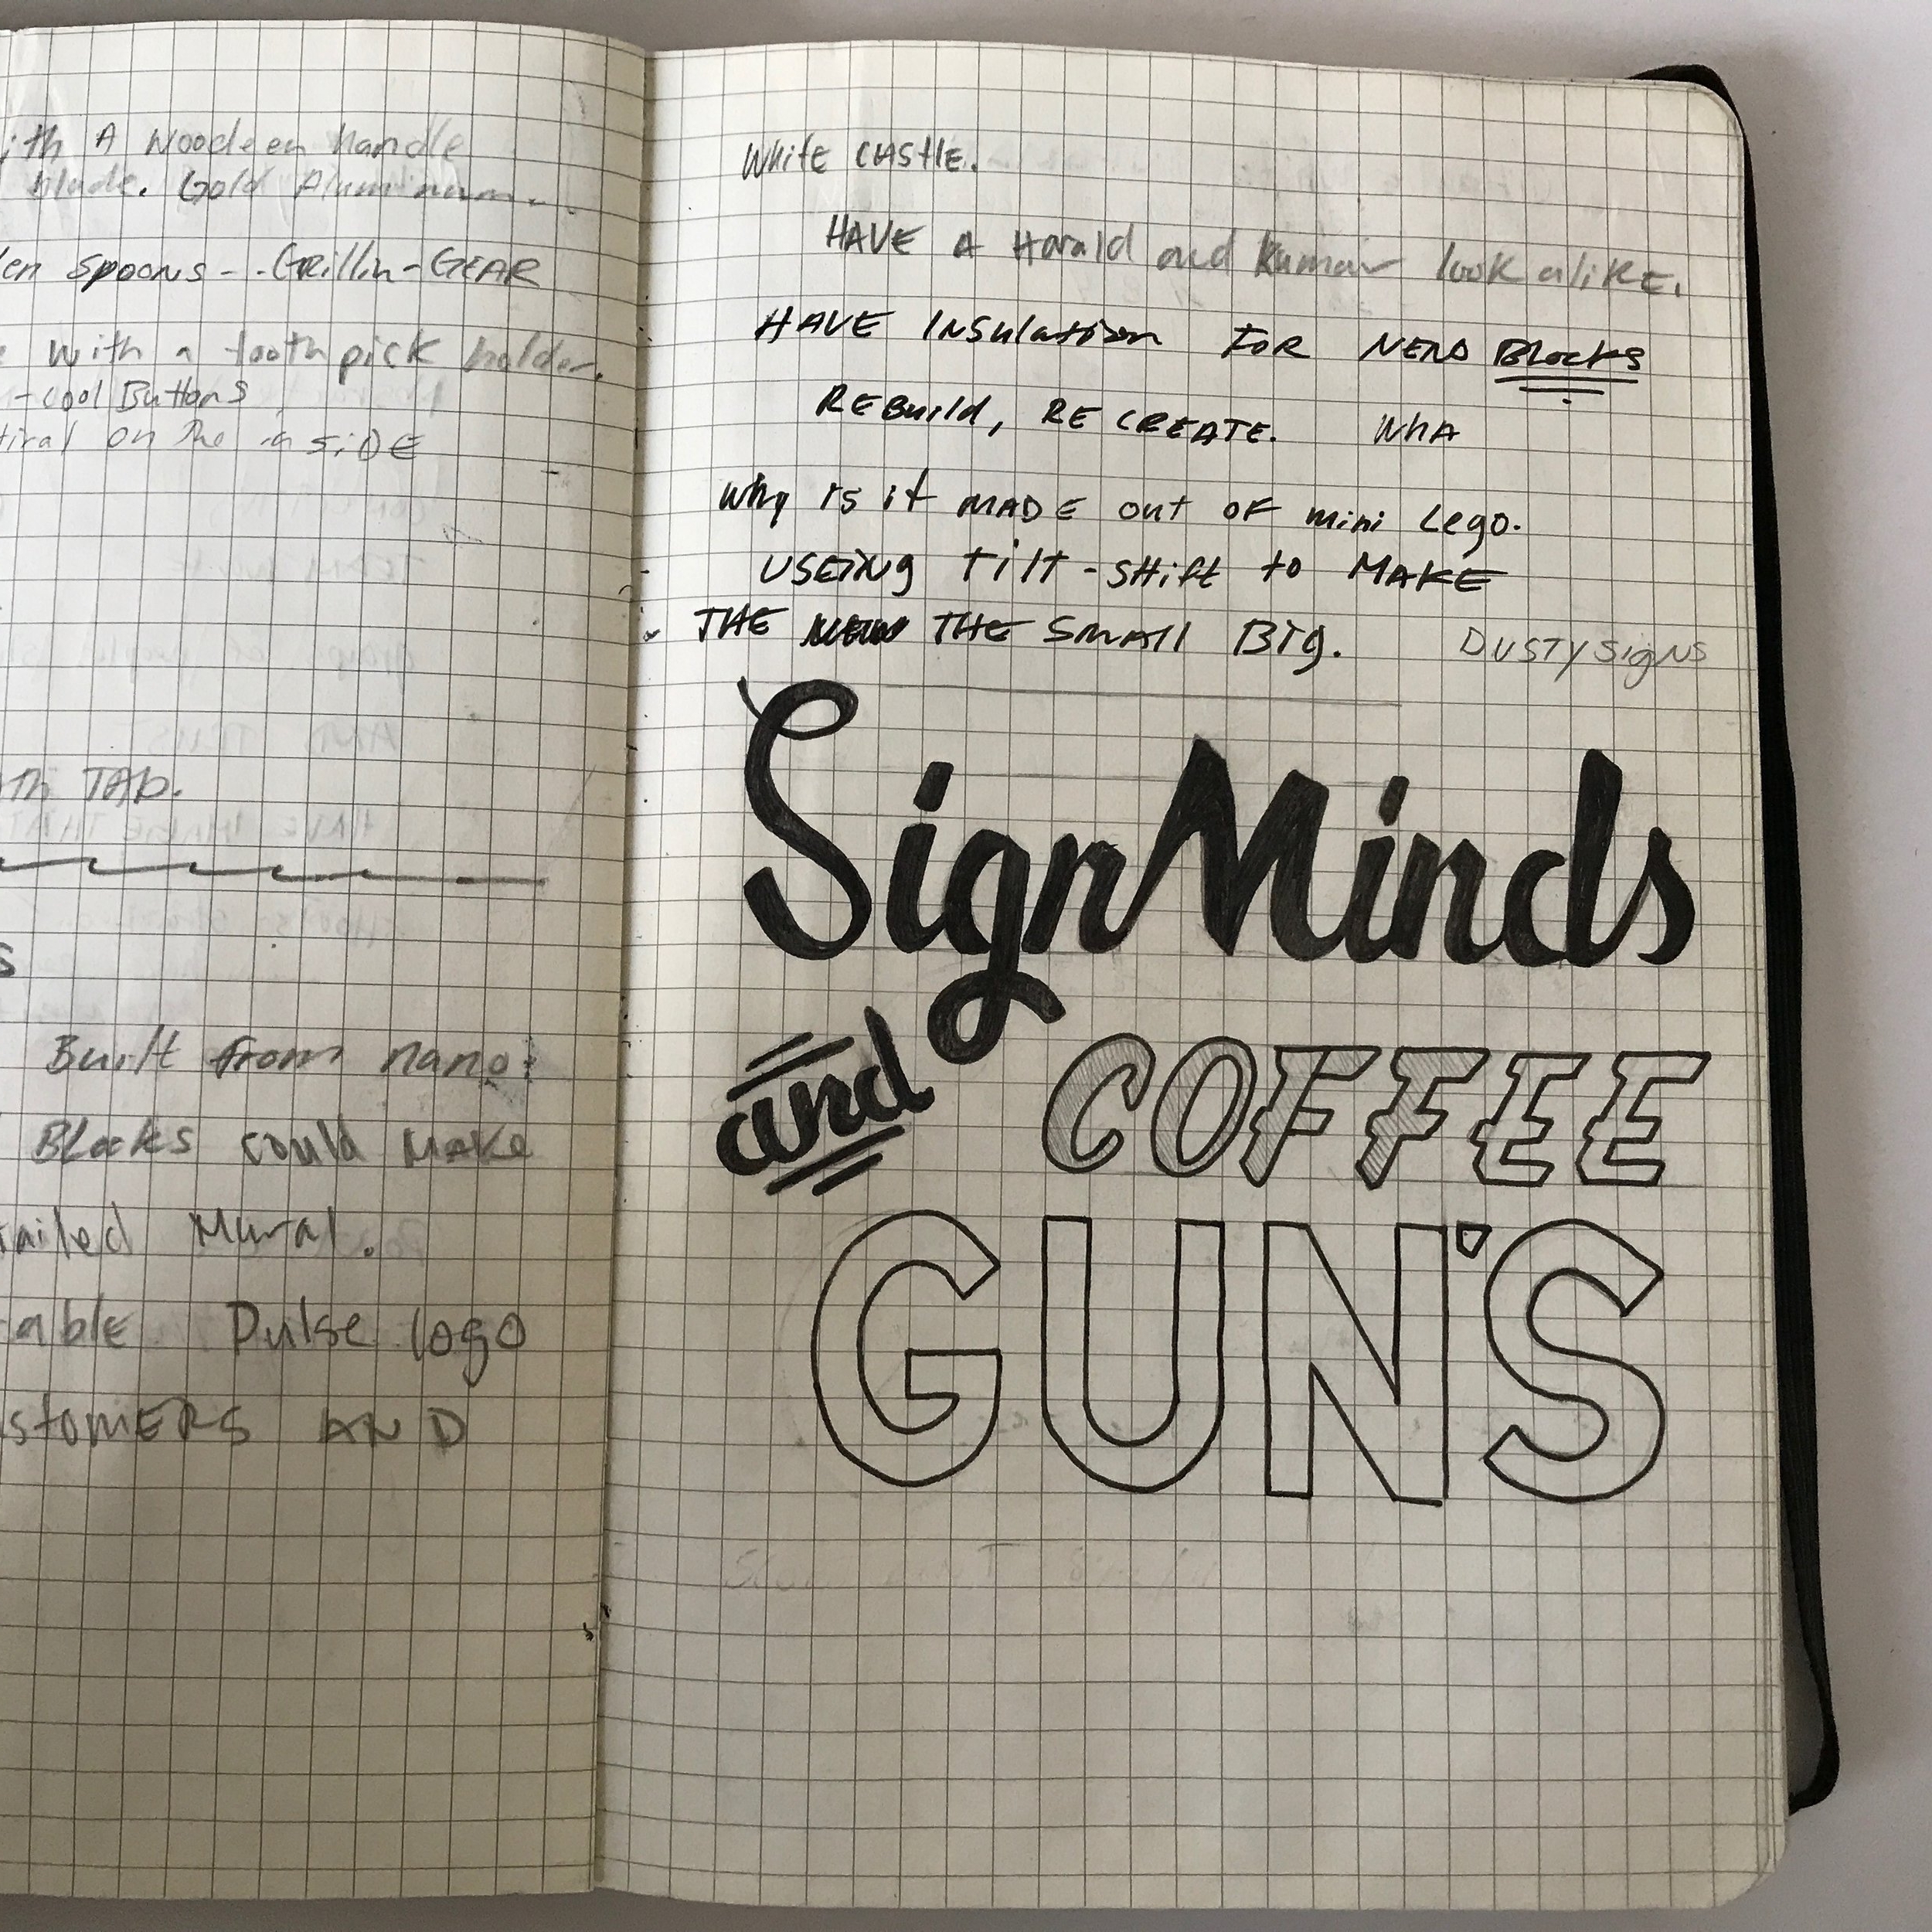 ith A Woodeen handle
blade. Gold Aluminum
en spoons - Grillin-GEAR
with a tooth pick holder.
-cool Buttons
on the in SiDE
th TAb.
s
Built from nano
Blocks could Make
ailed Mural.
able Pulse logo
stomERS AND
White CAStlE.
HAVE A Harald and Kumar look alikE.
HAVE INSulation FOR NERD Blocks
REBuild, RE CREATE. WhA
Why is it MADE out OF mini Lego.
USEING Tilt-SHift to MAKE
THE THE SMAll BIG. DUSTY SigNS
SignMinds
and COFFEE
GUN'S